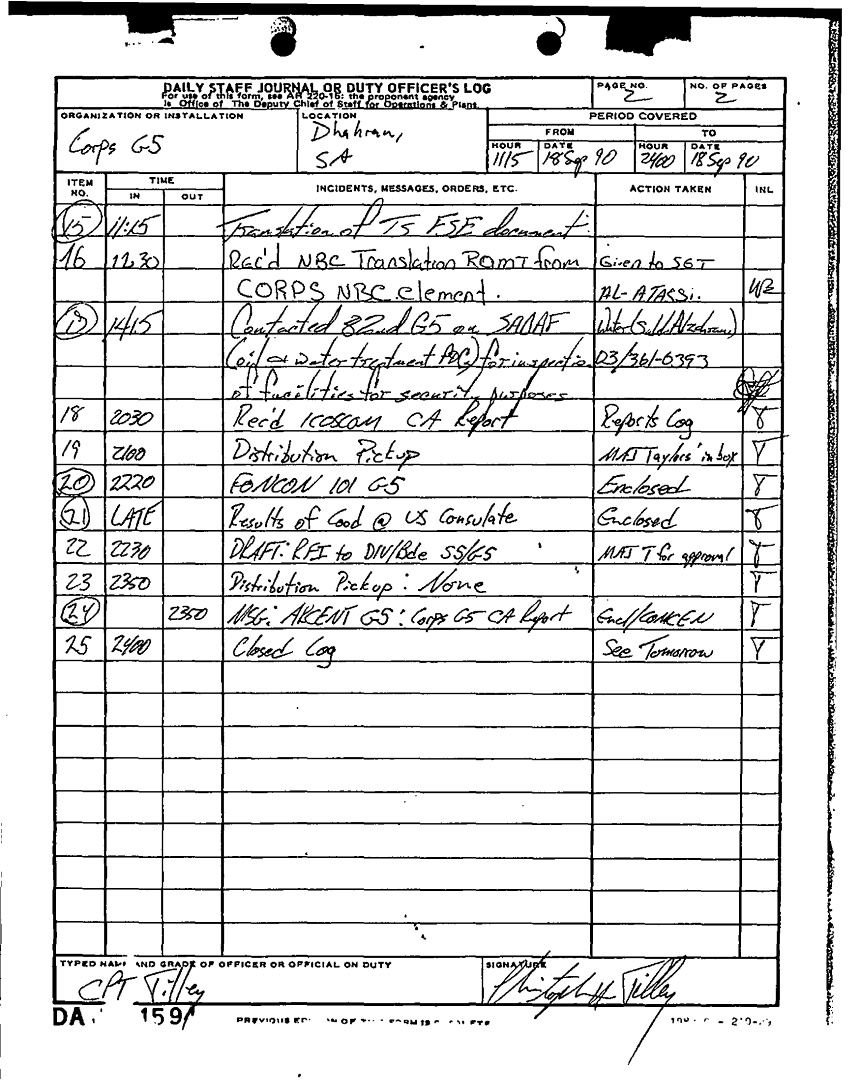 DAILY STAFF JOURNAL OR DUTY OFFICER'S LOG
For use of this form, see AR 220-15: the proponent agency
is Office of The Deputy Chief of Staff for Operations & Plans.
PAGE NO.
2
NO. OF PAGES
2
ORGANIZATION OR INSTALLATION
Corps G5
LOCATION
Dhahran,
SA
PERIOD COVERED
FROM
TO
HOUR
1115
DATE
18 Sep 90
HOUR
2400
DATE
18 Sep 90
ITEM NO.
TIME
IN
OUT
INCIDENTS, MESSAGES, ORDERS, ETC.
ACTION TAKEN
INL
15 11:15 Translation of TS FSE document.
16 1230 Rec'd NBC Translation RQMT from Given to SGT
CORPS NBC element. AL-ATASSi.
1415 Contacted 82nd G5 on
(oil & water treatment) for inspection 03/361-0393
of facilities for security purposes
18 2030 Rec'd COSCOM CA Report Reports Log
19 2100 Distribution Pickup MAJ Taylors' in box
20 2220 FONCON 101 G5 Enclosed
21 LATE Results of Coord @ US Consulate Enclosed
22 2230 DRAFT: RFI to DIV/Bde S5/G5 MAJ T for approval
23 2350 Distribution Pickup: None
24 2350 MSG: ARCENT G5: Corps G5 CA Report Encl/COMCEN
25 2400 Closed Log See Tomorrow
TYPED NAME AND GRADE OF OFFICER OR OFFICIAL ON DUTY
CPT Tilley
SIGNATURE
Tilley
DA 159
PREVIOUS